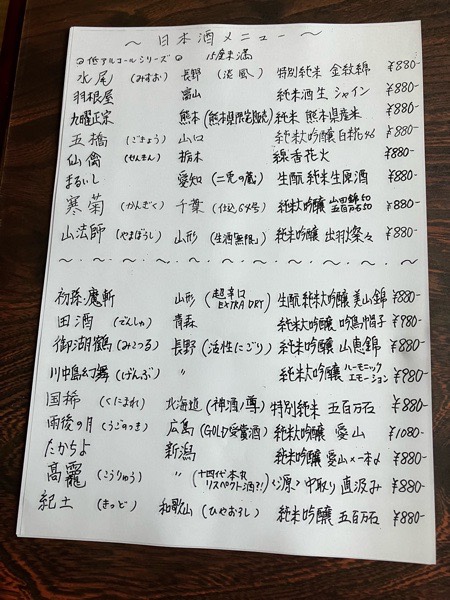 ～ 日本酒メニュー ～
低アルコールシリーズ 15度未満
水尾 (みずお) 長野 (淡風) 特別純米 金紋錦 ¥880-
羽根屋 富山 純米酒生 シャイン ¥880-
九曜正宗 熊本 純米 熊本県産米 ¥880-
五橋 (ごきょう) 山口 純米大吟醸 白糀46 ¥880-
仙禽 (せんきん) 栃木 線香花火 ¥880-
まるいし 愛知 (二兎の蔵) 生酛 純米生原酒 ¥880-
寒菊 (かんぎく) 千葉 (仕込64号) 純米大吟醸 山田錦50 五百万石50 ¥880-
山法師 (やまぼうし) 山形 (生酒無限) 純米吟醸 出羽燦々 ¥880-
初孫・魔斬 山形 (超辛口 EXTRA DRY) 生酛 純米大吟醸 美山錦 ¥880-
田酒 (でんしゅ) 青森 純米大吟醸 吟烏帽子 ¥980-
御湖鶴 (みこつる) 長野 (活性にごり) 純米吟醸 山恵錦 ¥880-
川中島幻舞 (げんぶ) 〃 純米大吟醸 ハーモニックエモーション ¥980-
国稀 (くにまれ) 北海道 特別純米 五百万石 ¥880-
雨後の月 (うごのつき) 広島 (GOLD受賞酒) 純米大吟醸 愛山 ¥1080-
たかちよ 新潟 純米吟醸 愛山×一本〆 ¥880-
高龗 (こうりゅう) 〃 (十四代本丸リスペクト酒?!) 中取り 直汲み ¥880-
紀土 (きっど) 和歌山 (ひやおろし) 純米吟醸 五百万石 ¥880-